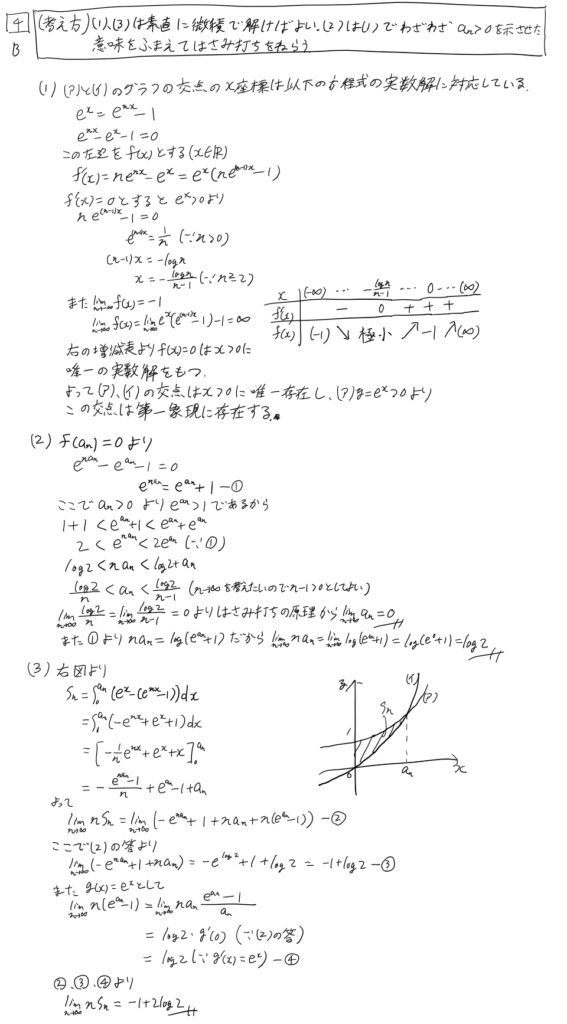 4
B
(考え方)(1),(3)は素直に微積で解けばよい。(2)は(1)でわざわざ aₙ>0を示させた
意味をふまえてはさみ打ちをねらう。
(1) (ア)と(イ)のグラフの交点のx座標は以下の方程式の実数解に対応している。
eˣ = eⁿˣ - 1
eⁿˣ - eˣ - 1 = 0
この左辺を f(x)とする(x∈ℝ)
f'(x) = neⁿˣ - eˣ = eˣ(ne^{(n-1)x} - 1)
f'(x) = 0とすると eˣ>0より
n e^{(n-1)x} - 1 = 0
e^{(n-1)x} = 1/n (∵n>0)
(n-1)x = -log n
x = -log n/(n-1) (∵n≧2)
また lim_{x→-∞} f(x) = -1
lim_{x→∞} f(x) = lim_{x→∞} eˣ(e^{(n-1)x} - 1) - 1 = ∞
x (-∞) … -log n/(n-1) … 0 … (∞)
f'(x) - 0 + + +
f(x) (-1) ↘ 極小 ↗ -1 ↗ (∞)
右の増減表より f(x)=0は x>0に
唯一の実数解をもつ。
よって(ア)、(イ)の交点は x>0に唯一存在し、(ア)y=eˣ>0より
この交点は第一象現に存在する。
(2) f(aₙ) = 0 より
e^{naₙ} - e^{aₙ} - 1 = 0
e^{naₙ} = e^{aₙ} + 1 - ①
ここで aₙ>0 より e^{aₙ}>1であるから
1+1 < e^{aₙ}+1 < e^{aₙ}+e^{aₙ}
2 < e^{naₙ} < 2e^{aₙ} (∵①)
log2 < naₙ < log2+aₙ
log2/n < aₙ < log2/(n-1) (n→∞を考えたいので n-1>0としてよい)
lim_{n→∞} log2/n = lim_{n→∞} log2/(n-1) = 0 よりはさみ打ちの原理から lim_{n→∞} aₙ = 0
また ①より naₙ = log(e^{aₙ}+1) だから lim_{n→∞} naₙ = lim_{n→∞} log(e^{aₙ}+1) = log(e⁰+1) = log2
(3) 右図より
Sₙ = ∫₀^{aₙ} (eˣ - (eⁿˣ - 1))dx
= ∫₀^{aₙ} (-eⁿˣ + eˣ + 1)dx
= [-1/n eⁿˣ + eˣ + x]₀^{aₙ}
= -(e^{naₙ} - 1)/n + e^{aₙ} - 1 + aₙ
y
(イ)
(ア)
Sₙ
1
0
aₙ
x
よって
lim_{n→∞} nSₙ = lim_{n→∞} (-e^{naₙ} + 1 + naₙ + n(e^{aₙ} - 1)) - ②
ここで(2)の答より
lim_{n→∞} (-e^{naₙ} + 1 + naₙ) = -e^{log2} + 1 + log2 = -1 + log2 - ③
また g(x) = eˣとして
lim_{n→∞} n(e^{aₙ} - 1) = lim_{n→∞} naₙ (e^{aₙ} - 1)/aₙ
= log2・g'(0) (∵(2)の答)
= log2 (∵g'(x) = eˣ) - ④
②、③、④より
lim_{n→∞} nSₙ = -1 + 2log2